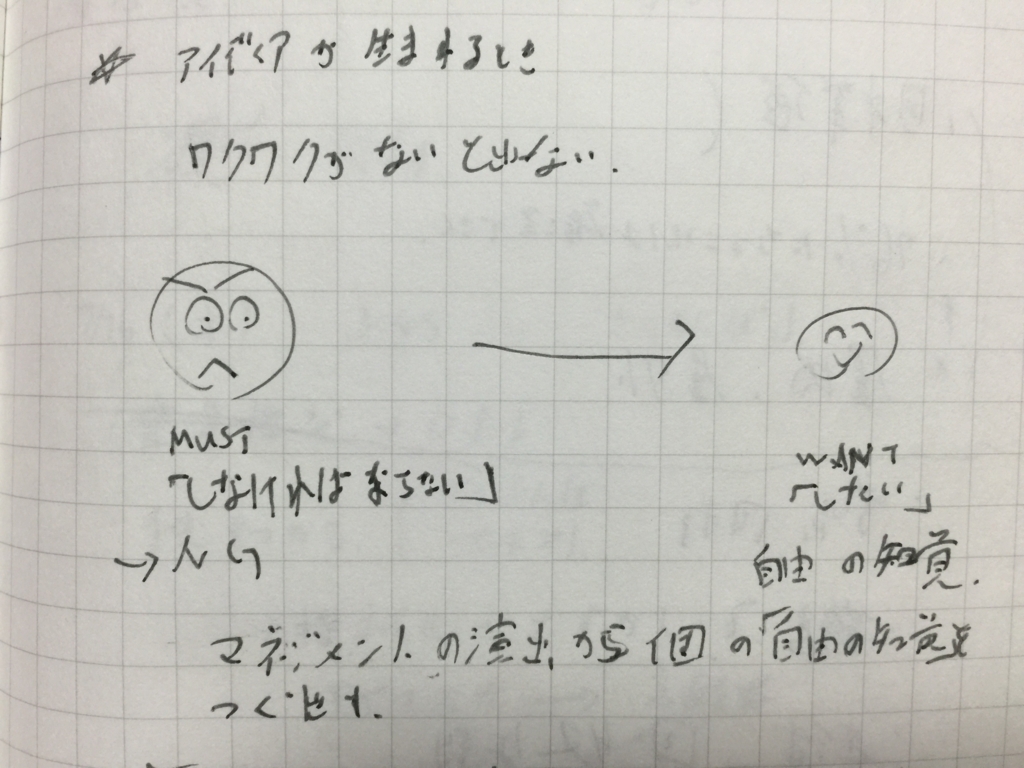 * アイディアが生まれるとき
ワクワクがないと出ない.
MUST
「しなければならない」
→ NG
WANT
「したい」
自由の知覚.
マネジメントの演出から個の「自由の知覚を